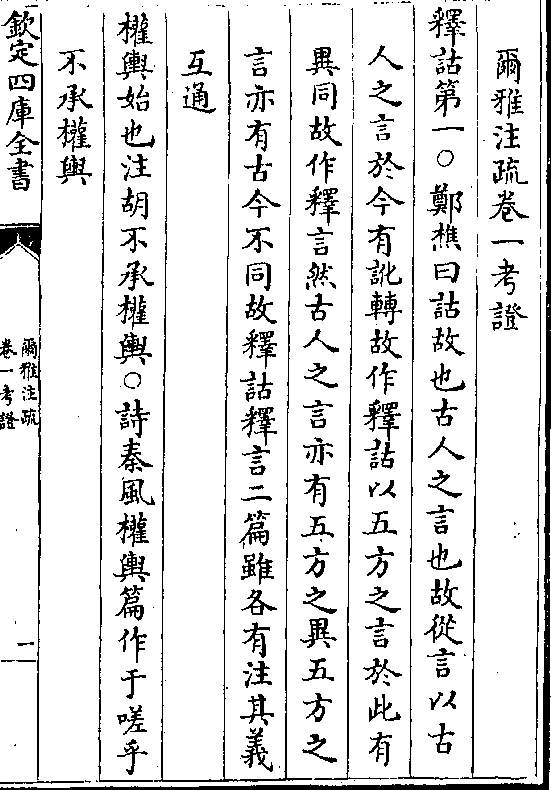 爾雅注疏卷一考證
釋詁第一○鄭樵曰詁故也古人之言也故從言以古
人之言於今有訛轉故作釋詁以五方之言於此有
異同故作釋言然古人之言亦有五方之異五方之
言亦有古今不同故釋詁釋言二篇雖各有注其義
互通
權輿始也注胡不承權輿○詩秦風權輿篇作于嗟乎
不承權輿
欽定四庫全書
爾雅注疏
卷一考證
一